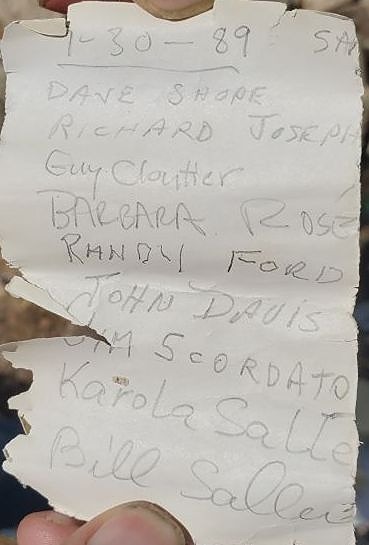 1-30-89 SA
DAVE SHOPE
RICHARD JOSEPH
Guy Cloutier
BARBARA ROSE
RANDY FORD
JOHN DAVIS
JIM SCORDATO
Karola Salle
Bill Salle